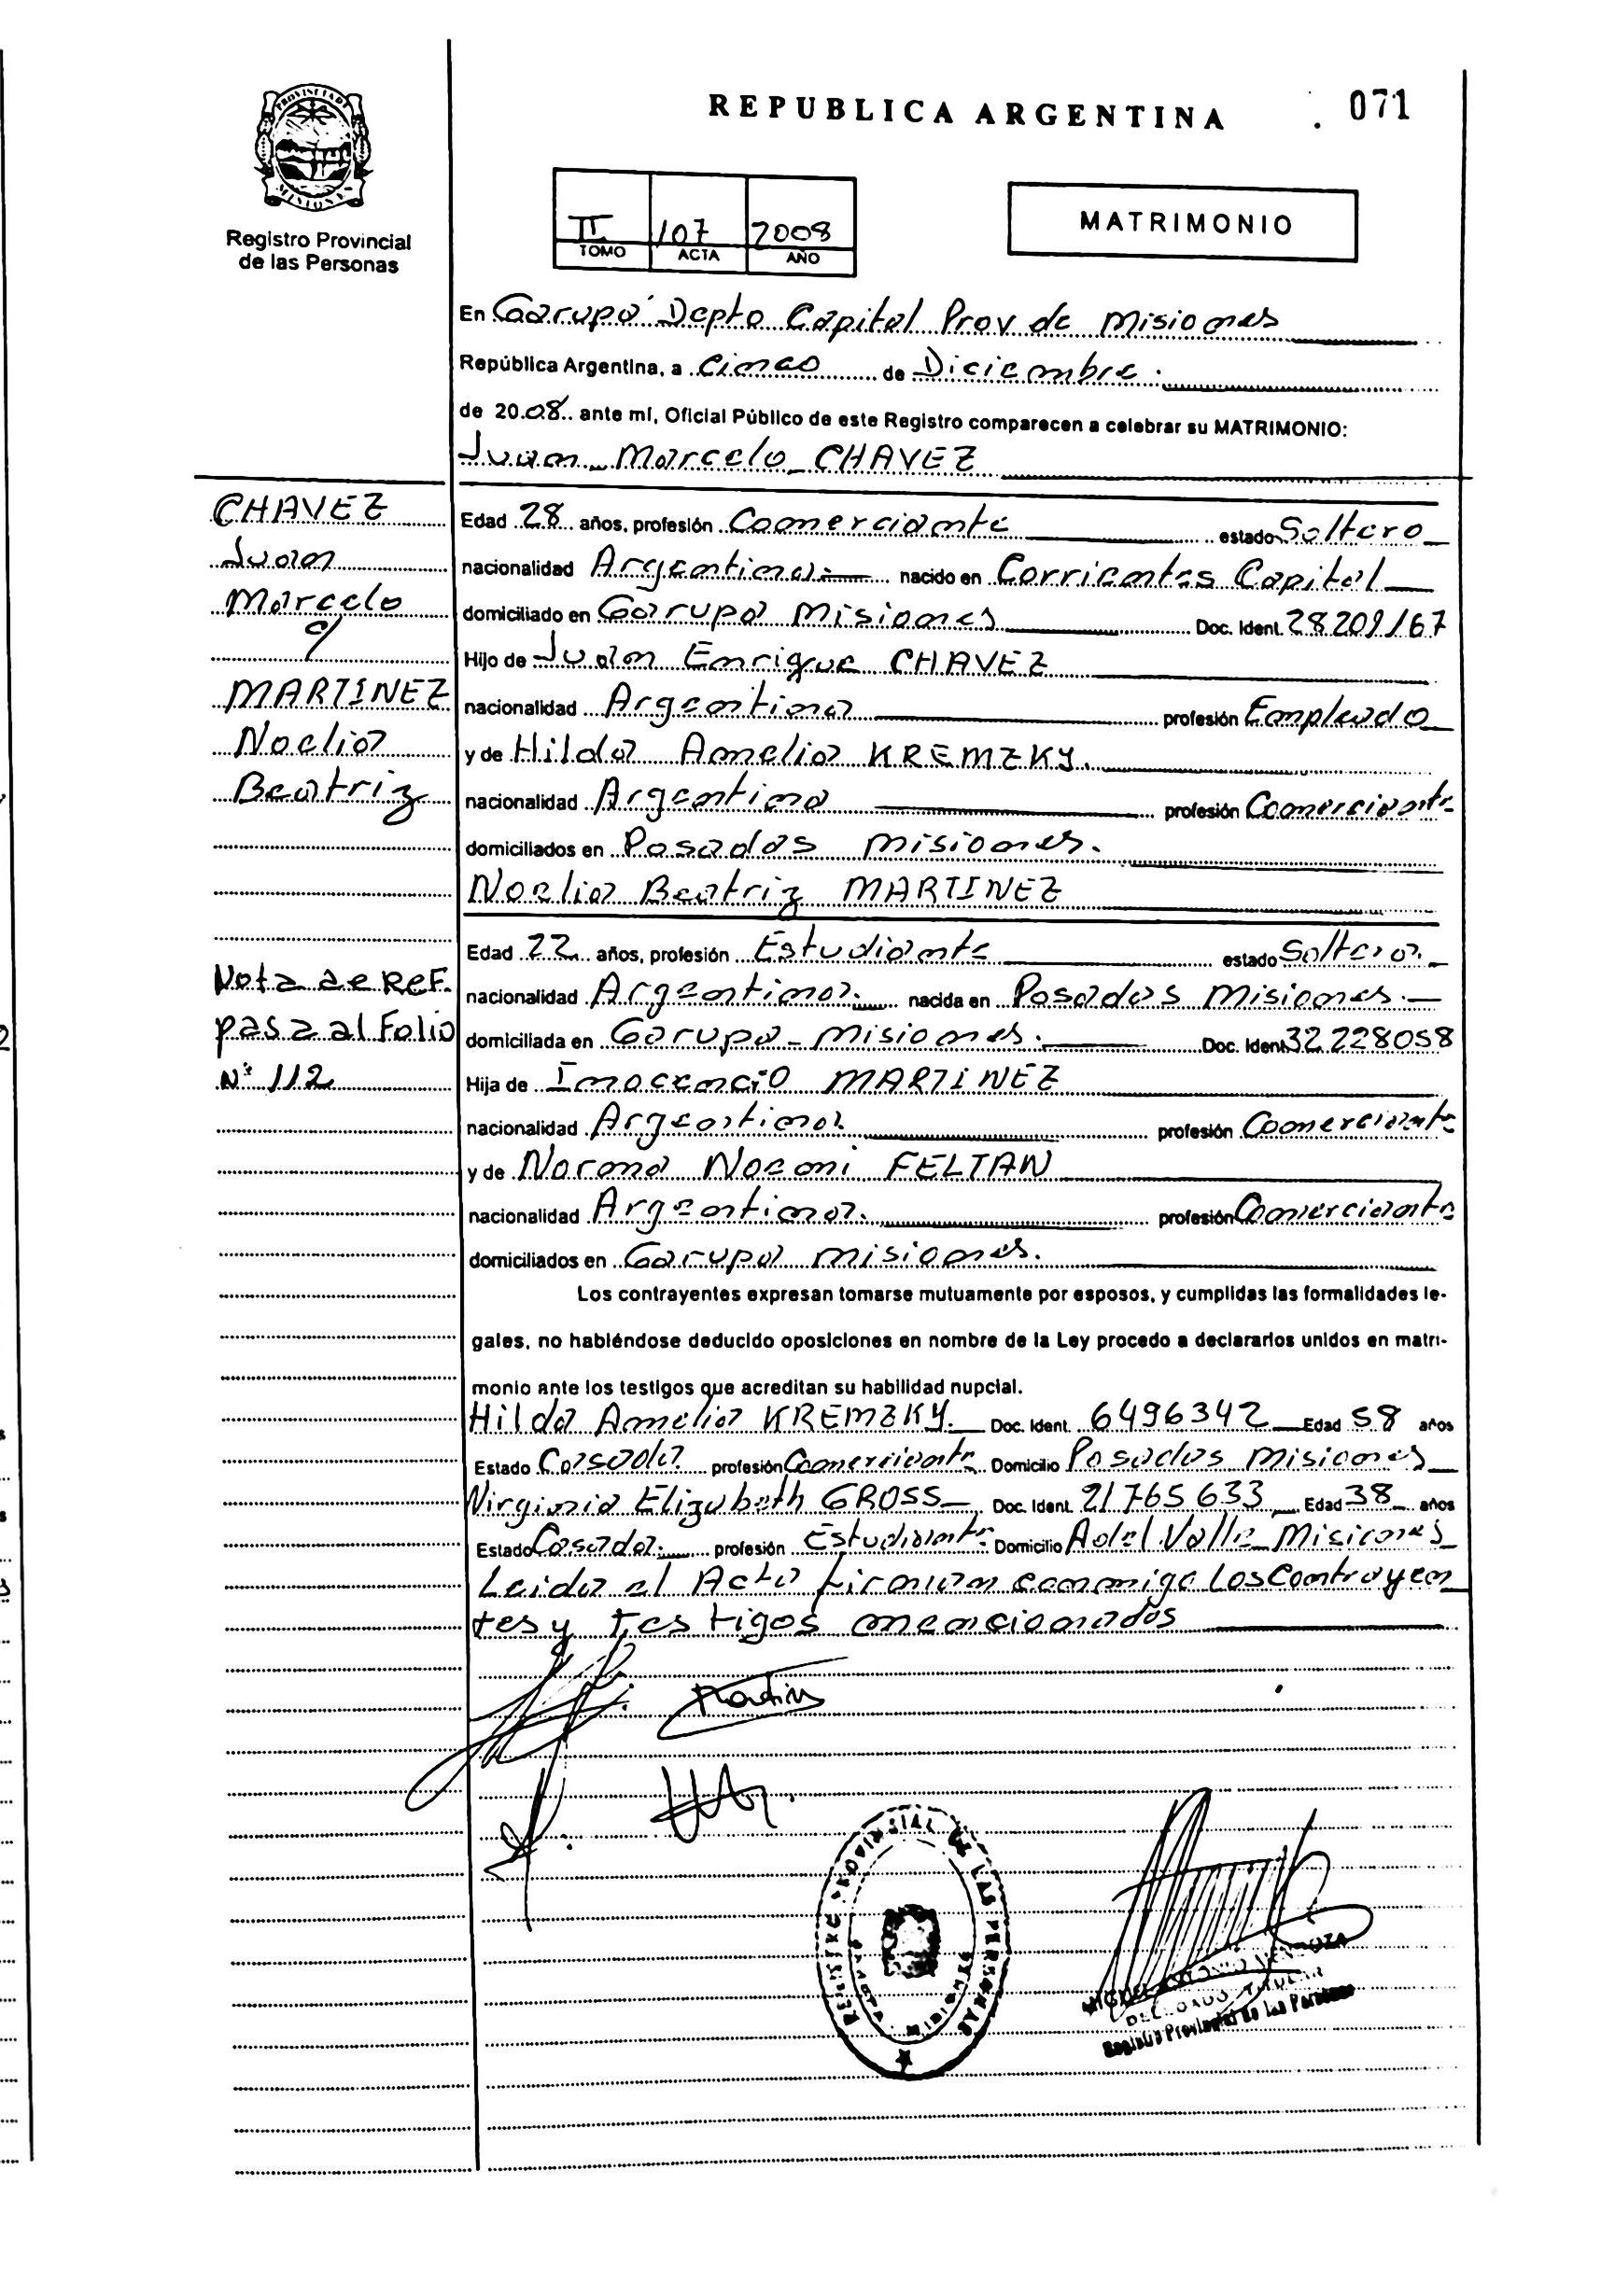 REPUBLICA ARGENTINA . 071
PROVINCIA DE MISIONES
Registro Provincial
de las Personas
II 107 2008
TOMO ACTA AÑO
MATRIMONIO
En Garupá Depto Capital Prov de Misiones
República Argentina, a Cinco de Diciembre.
de 2008 ante mí, Oficial Público de este Registro comparecen a celebrar su MATRIMONIO:
Juan Marcelo CHAVEZ
CHAVEZ
Juan
Marcelo
c/
MARTINEZ
Noelia
Beatriz
Nota de REF.
pasa al Folio
N° 112
Edad 28 años, profesión Comerciante estado Soltero
nacionalidad Argentina.- nacido en Corrientes Capital
domiciliado en Garupa Misiones Doc. Ident. 28209167
Hijo de Juan Enrique CHAVEZ
nacionalidad Argentina profesión Empleado
y de Hilda Amelia KREMZKY.
nacionalidad Argentina profesión Comerciante
domiciliados en Posadas Misiones.
Noelia Beatriz MARTINEZ
Edad 22 años, profesión Estudiante estado Soltera.
nacionalidad Argentina. nacida en Posadas Misiones.-
domiciliada en Garupa - Misiones. Doc. Ident. 32228058
Hija de Inocencio MARTINEZ
nacionalidad Argentina. profesión Comerciante
y de Norma Noemi FELTAN
nacionalidad Argentina. profesión Comerciante
domiciliados en Garupa Misiones.
Los contrayentes expresan tomarse mutuamente por esposos, y cumplidas las formalidades le-
gales, no habiéndose deducido oposiciones en nombre de la Ley procedo a declararlos unidos en matri-
monio ante los testigos que acreditan su habilidad nupcial.
Hilda Amelia KREMZKY. Doc. Ident. 6496342 Edad 58 años
Estado Casada profesión Comerciante Domicilio Posadas Misiones
Virginia Elizabeth GROSS Doc. Ident. 21765633 Edad 38 años
Estado Casada. profesión Estudiante Domicilio A del Valle Misiones
Leida el Acta firman conmigo Los Contrayen
tes y testigos mencionados
REGISTRO PROVINCIAL DE LAS PERSONAS
MIGUEL ANTONIO MENDOZA
DELEGADO TITULAR
Registro Provincial de las Personas